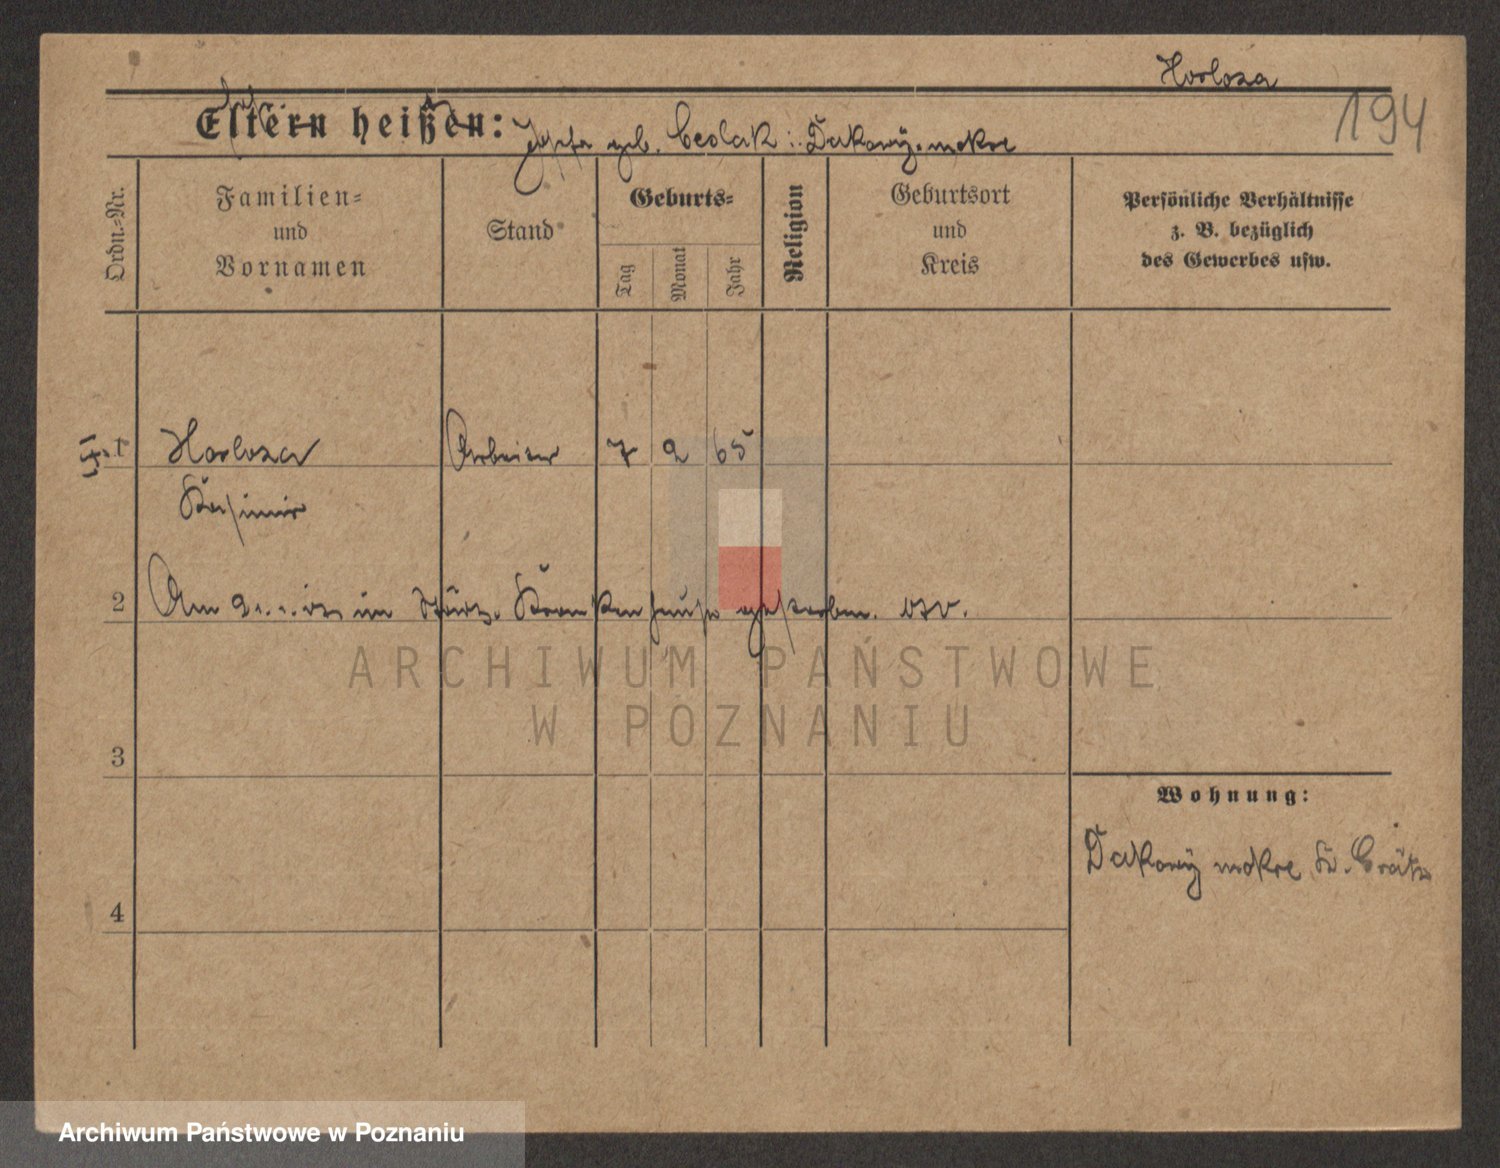 Horloza
194
Eltern heißen: Josefa geb. Ceolak : Dakowy. mokre
Ordn.-Nr.
Familien-
und
Vornamen
Stand
Geburts-
Tag
Monat
Jahr
Religion
Geburtsort
und
Kreis
Persönliche Verhältnisse
z. B. bezüglich
des Gewerbes usw.
1 Horloza Arbeiter 7 2 65
Kasimir
2 Am im Krankenhause gestorben.
ARCHIWUM PAŃSTWOWE
W POZNANIU
3
Wohnung:
Dakowy mokre Kr. Grätz
4
Archiwum Państwowe w Poznaniu